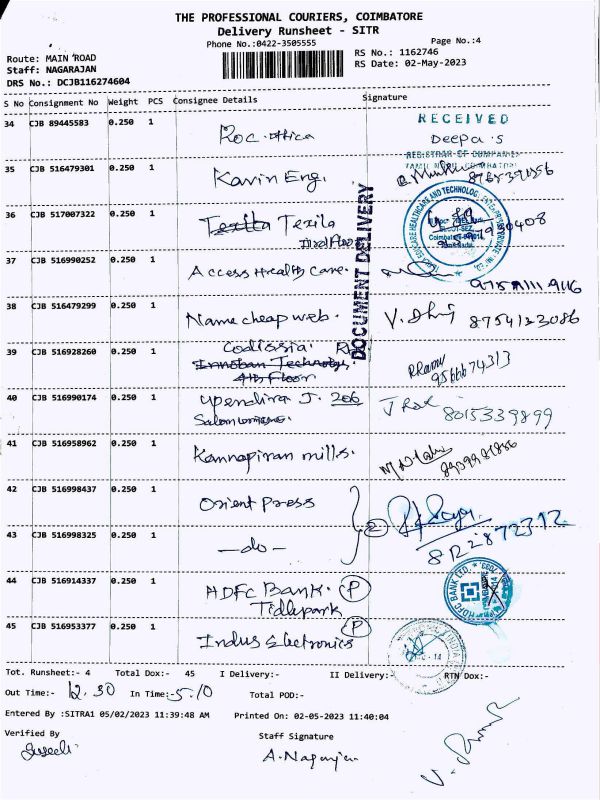 THE PROFESSIONAL COURIERS, COIMBATORE
Delivery Runsheet - SITR
Phone No.:0422-3505555
Page No.:4
Route: MAIN ROAD
RS No.: 1162746
Staff: NAGARAJAN
RS Date: 02-May-2023
DRS No.: DCJB116274604
S No Consignment No Weight PCS Consignee Details Signature
34 CJB 89445583 0.250 1
Roc. office
RECEIVED
Deepa.S
REGISTRAR OF COMPANIES
35 CJB 516479301 0.250 1
Kavin Eng.
36 CJB 517007322 0.250 1
Texila Texila
IIIrd Floor
DOCUMENT DELIVERY
37 CJB 516990252 0.250 1
Access Health Care.
38 CJB 516479299 0.250 1
Name cheap web.
8754123086
39 CJB 516928260 0.250 1
Codissia.
4th Floor
9566674313
40 CJB 516990174 0.250 1
Upendira J. 206
8015339899
41 CJB 516958962 0.250 1
Kannapiran mills.
42 CJB 516998437 0.250 1
Orient Press
2
43 CJB 516998325 0.250 1
—do—
44 CJB 516914337 0.250 1
HDFC Bank. P
Tidlepark
HDFC BANK LTD.
45 CJB 516953377 0.250 1
Indus Electronics P
Tot. Runsheet:- 4 Total Dox:- 45 I Delivery:- II Delivery:- RTN Dox:-
Out Time:- 12.30 In Time:- 5.10 Total POD:-
Entered By :SITRA1 05/02/2023 11:39:48 AM Printed On: 02-05-2023 11:40:04
Verified By
Staff Signature
A. Nagarajan